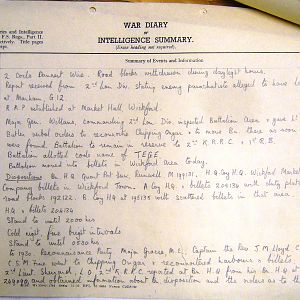 WAR DIARY
or
INTELLIGENCE SUMMARY.
(Erase heading not required).
ries and Intelligence
F.S. Regs., Part II.
ctively. Title pages
ript.
Summary of Events and Information
2 Coils Dannert Wire. Road blocks withdrawn during daylight hours.
Report received from 2 Lon. Div. stating enemy parachutist alleged to have
at Marham G.12.
R.A.P. established at Market Hall, Wickford.
Maj. Gen. Williams, commanding 2nd Lon. Div. inspected Battalion area + gave Lt.
Butler verbal orders to reconnoitre Chipping Ongar + to move Bn. there as soon
were found. Battalion to remain in reserve to 2nd K.R.R.C. + 1st R.B.
Battalion allotted code name of "TEGE"
Battalion moved into billets in Wickford area today.
Dispositions Bn. H.Q. Runwell M 199131, H.Q. Coy H.Q. Wickford Market
Company billets in Wickford Town. A Coy H.Q. + billets 206136 with duty
road Planks 192122. B Coy H.Q. at 195138 with scattered billets in that area
H.Q. + billets 206136
Stand to until 2000 hrs
Cold night, fires bright intervals
Stand to until 0530 hrs
to 1930. Reconnaissance Party Major Gracie, M.C., Captain the Rev. J.M. Lloyd C
C.S.M. Fine went to Chipping Ongar + reconnoitred harbours + billets
2nd Lieut. Sheppard, L.O., 2nd K.R.R.C. reported at Bn. H.Q. from his Bn. H.Q. at
and obtained information about the disposition and the orders as to the